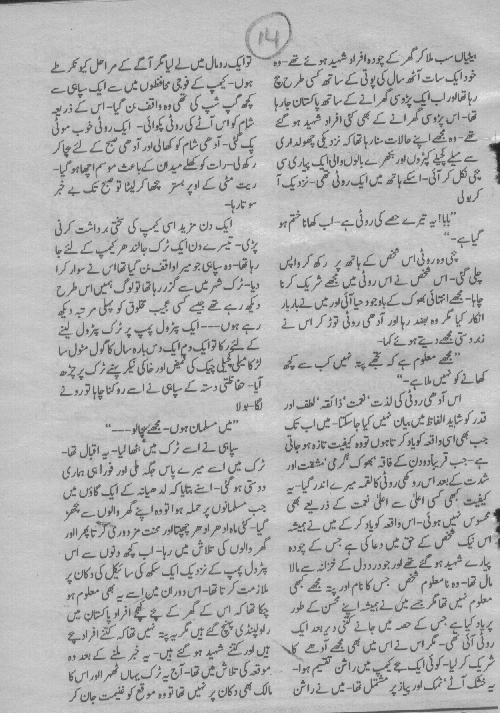 14
بیٹیاں سب ملا کر گھر کے چودہ افراد شہید ہوئے تھے۔ وہ
خود ایک سات آٹھ سال کی پوتی کے ساتھ کسی طرح بچ
رہا تھا اور اب ایک پڑوسی گھرانے کے ساتھ پاکستان جا رہا
تھا۔ اس پڑوسی گھرانے کے بھی کئی افراد شہید ہو گئے
تھے۔ وہ مجھے اپنے حالات سنا رہا تھا کہ نزدیکی چھولداری
سے میلے کچیلے کپڑوں اور بکھرے بالوں والی ایک پیاری سی
بچی نکل کر آئی۔ اسکے ہاتھ میں ایک روٹی تھی۔ نزدیک آ
کر بولی
"بابا! یہ تیرے حصے کی روٹی ہے۔ اب کھانا ختم ہو
گیا ہے"۔
بچی وہ روٹی اس شخص کے ہاتھ پر رکھ کر واپس
چلی گئی۔ اس شخص نے اس روٹی میں مجھے شریک کرنا
چاہا۔ مجھے انتہائی بھوک کے باوجود حیا آئی اور میں نے بار بار
انکار کیا مگر وہ بضد رہا اور آدھی روٹی توڑ کر اس نے
زبردستی مجھے دیتے ہوئے کہا۔
"مجھے معلوم ہے کہ تجھے پتہ نہیں کب سے کچھ
کھانے کو نہیں ملا ہے"۔
اس آدھی روٹی کی لذت، نعمت، ذائقہ، لطف اور
قدر کو شاید الفاظ میں بیان نہیں کیا جا سکتا۔ میں اب تک
جب بھی اس واقعہ کو یاد کرتا ہوں تو وہ کیفیت تازہ ہو جاتی
ہے۔ جب قریباً دو دن کے فاقہ، بھوک، گرمی، مشقت اور
شدت کے بعد اس روکھی روٹی کا لقمہ میرے اندر گیا۔ یہ
کیفیت بھی کسی اعلیٰ سے اعلیٰ نعمت کے ذریعے بھی
محسوس نہیں ہوئی۔ اس واقعہ کو یاد کر کے میں نے ہمیشہ
اس نیک شخص کے حق میں دعا کی ہے جس کے چودہ
پیارے شہید ہو گئے تھے اور جو درد دل کے خزانہ سے مالا
مال تھا۔ وہ نامعلوم شخص جس کا نام اور پتہ مجھے کبھی
معلوم نہیں تھا مگر جسے میں نے ہمیشہ اپنے محسن کے طور
پر یاد کیا ہے جس کے حصہ میں جانے کتنی دیر بعد ایک
روٹی آئی تھی۔ مگر اس نے اس میں بھی مجھے آدھے کا
شریک کر لیا۔ کوئی ایک بجے کیمپ میں راشن تقسیم ہوا۔
یہ خشک آٹے، نمک اور پیاز پر مشتمل تھا۔ میں نے راشن
تو ایک رومال میں لے لیا مگر آگے کے مراحل کیونکر طے
ہوں۔ کیمپ کے فوجی محافظوں میں سے ایک سپاہی سے
کچھ گپ شپ کی تھی وہ واقف بن گیا۔ اس کے ذریعہ
شام کو اس آٹے کی روٹی پکوائی۔ ایک روٹی خوب موٹی
پک گئی۔ آدھی شام کو کھالی اور آدھی صبح کے لئے بچا کر
رکھ لی۔ رات کو کھلے میدان کے باعث موسم اچھا ہو گیا۔
ریت مٹی کے اوپر بستر بچھا کر لیٹا تو صبح تک بے خبر
سوتا رہا۔
ایک دن مزید اسی کیمپ کی سختی برداشت کرنی
پڑی۔ تیسرے دن ایک ٹرک جالندھر کیمپ کے لئے جا
رہا تھا۔ وہ سپاہی جو میرا واقف بن گیا تھا اس نے سوار کرا
دیا۔ ٹرک شہر میں سے گزر رہا تھا تو لوگ ہمیں اس طرح
دیکھ رہے تھے جیسے کسی عجیب مخلوق کو پہلی مرتبہ دیکھ
رہے ہوں۔۔۔ ایک پٹرول پمپ پر ٹرک پٹرول لینے
کے لئے رکا تو ایک دم ایک دس بارہ سال کا گول مٹول سا
لڑکا میلی کچیلی چیک کی قمیض اور خاکی نیکر پہنے ٹرک پر چڑھ
آیا۔ حفاظتی دستہ کے سپاہی نے اسے روکنا چاہا تو رونے
لگا۔ بولا
"میں مسلمان ہوں۔ مجھے بچا لو۔۔۔"
سپاہی نے اسے ٹرک میں بٹھا لیا۔ یہ اقبال تھا۔
ٹرک میں اسے میرے پاس جگہ ملی اور فوراً ہی ہماری
دوستی ہو گئی۔ اسنے بتایا کہ لدھیانہ کے ایک گاؤں میں
جب مسلمانوں پر حملہ ہوا تو وہ اپنے گھر والوں سے بچھڑ
گیا۔ کئی ماہ ادھر ادھر چھپتا اور محنت مزدوری کرتا پھرا اور
گھر والوں کی تلاش میں رہا۔ اب کچھ دنوں سے اس
پٹرول پمپ کے نزدیک ایک سکھ کی سائیکل کی دکان پر
ملازمت کرتا تھا۔ اس دوران میں اسے یہ بھی معلوم ہو
چکا تھا کہ اس کے گھر کے بچے کچھے افراد پاکستان میں
راولپنڈی پہنچ گئے ہیں مگر یہ پتہ نہیں تھا کہ کتنے افراد بچے
ہیں اور کتنے شہید ہو گئے ہیں۔ یہ خبر ملنے کے بعد وہ
موقعہ کی تلاش میں تھا۔ آج یہ ٹرک یہاں ٹھہرا اور اس کا
مالک بھی دکان پر نہیں تھا تو وہ موقع کو غنیمت جان کر